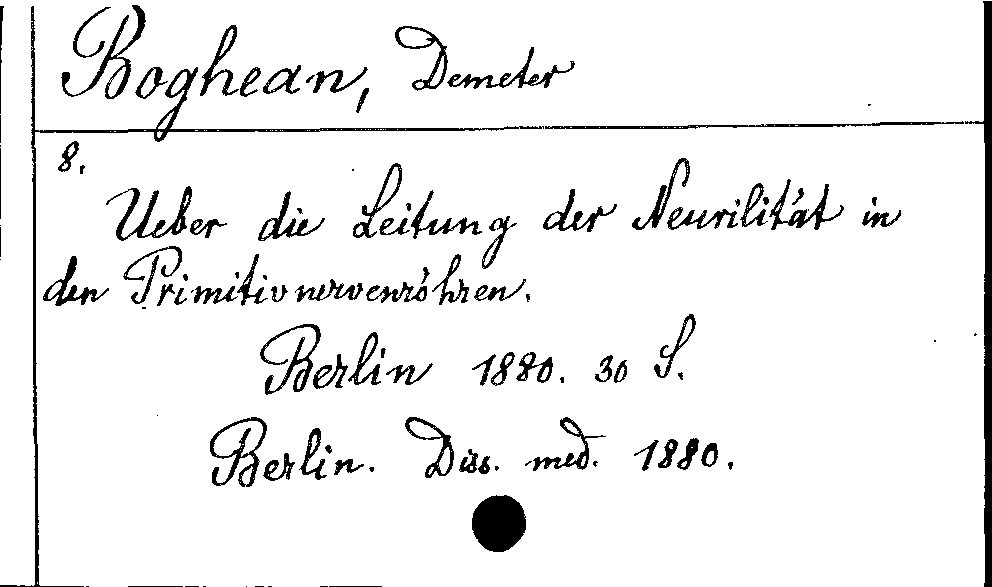 Boghean, Demeter
8.
Ueber die Leitung der Neurilität in
den Primitivnervenröhren.
Berlin 1880. 30 S.
Berlin. Diss. med. 1880.